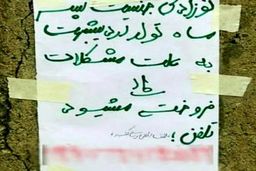 نوزادی جنسیت پسر
ماه تولد اردیبهشت
به علت مشکلات
مالی
فروخته میشود
تلفن: